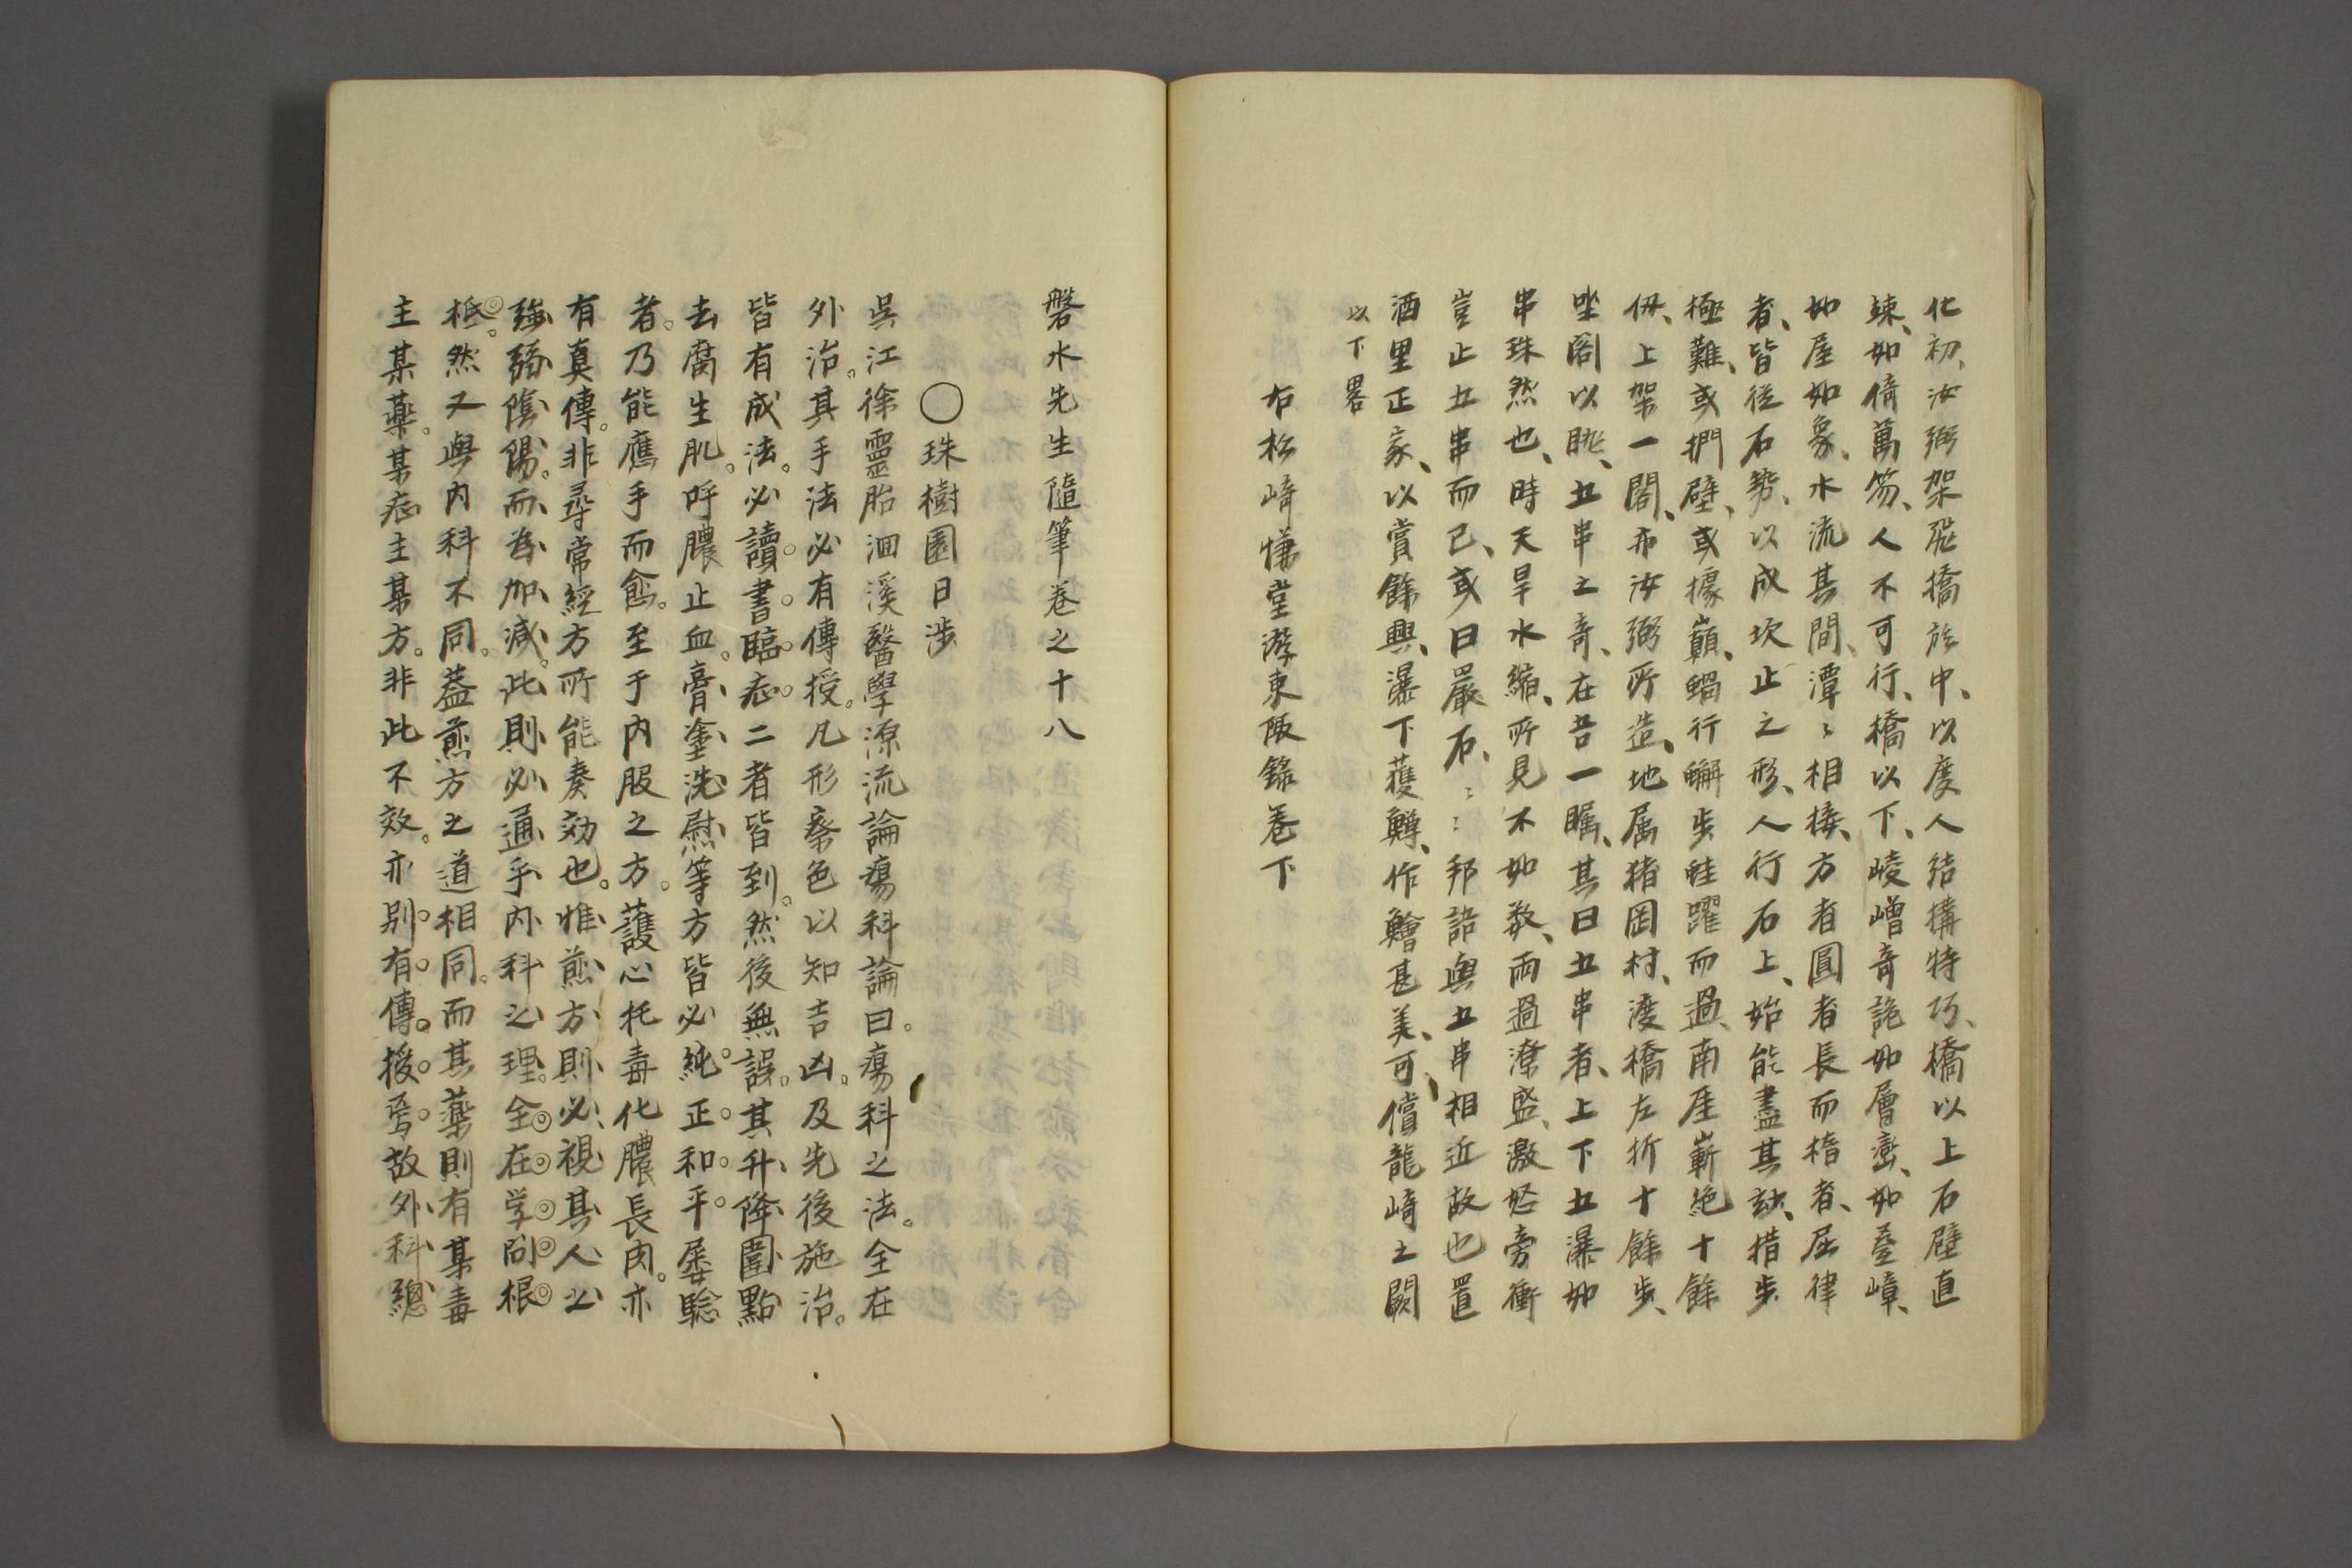 化初、汝弼架飛橋於中、以度人結構特巧、橋以上石壁直
竦、如倚萬笏、人不可行、橋以下、崚嶒奇詭如層巒、如疊嶂、
如屋如象、水流其間、潭〻相接、方者圓者長而楕者、屈律
者、皆従石勢、以成坎止之形、人行石上、始能盡其訣、措歩
極難、或捫壁、或據巔、蝸行蠏歩蛙躍而過、南崖嶄絶十餘
仭、上架一閣、亦汝弼所造、地属猪岡村、渡橋左折十餘歩、
坐閣以眺、五串之奇、在吾一矚、其曰五串者、上下五瀑如
串珠然也、時天旱水縮、所見不如数、雨過潦盛、激怒旁衝
豈止五串而已、或曰巖石、〻〻邦語與五串相近故也置
酒里正家、以賞餘興、瀑下獲鱒、作鱠甚美、可償龍崎之闕
以下畧
右松崎慊堂游東陬錄巻下
磐水先生隨筆巻之十八
○珠樹園日渉
呉江徐靈胎洄溪醫學源流論瘍科論曰。瘍科之法。全在
外治。其手法必有傳授。凡形察色以知吉凶。及先後施治。
皆有成法。必讀書臨症二者皆到。然後無誤。其升降圍點
去腐生肌。呼膿止血。膏塗洗慰等方皆必純正和平。屡驗
者。乃能應手而愈。至于内服之方。護心托毒化膿長肉。亦
有真傳。非尋常経方所能奏効也。惟煎方則必視其人之
強弱陰陽。而為加減。此則必通乎内科之理。全在学問根
柢。然又與内科不同。葢煎方之道相同。而其藥則有某毒
主某藥。某症主某方。非此不效。亦別有傳授焉。故外科總